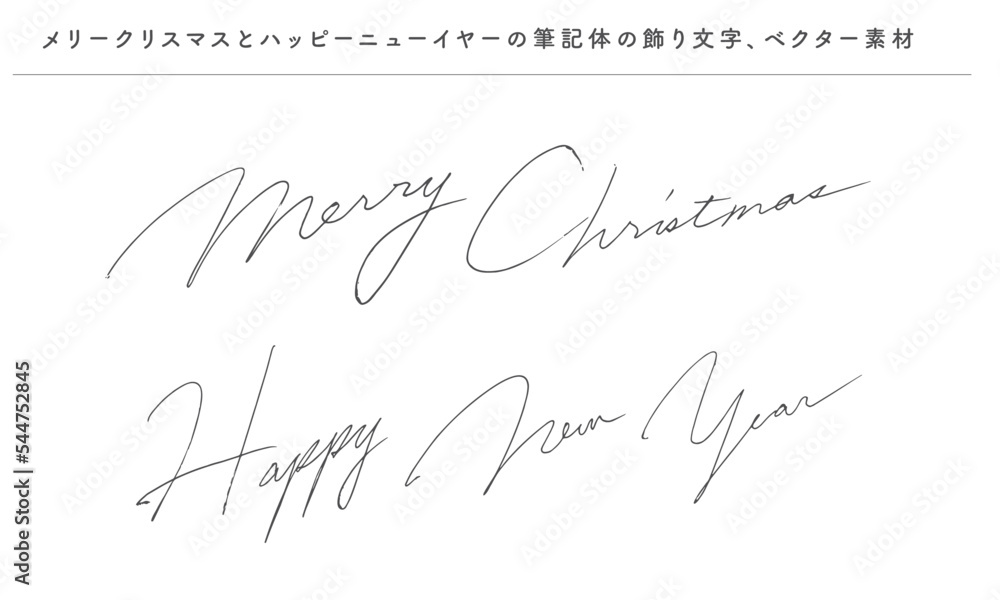 メリークリスマスとハッピーニューイヤーの筆記体の飾り文字、ベクター素材
Merry Christmas
Happy New Year
Adobe Stock | #544752845